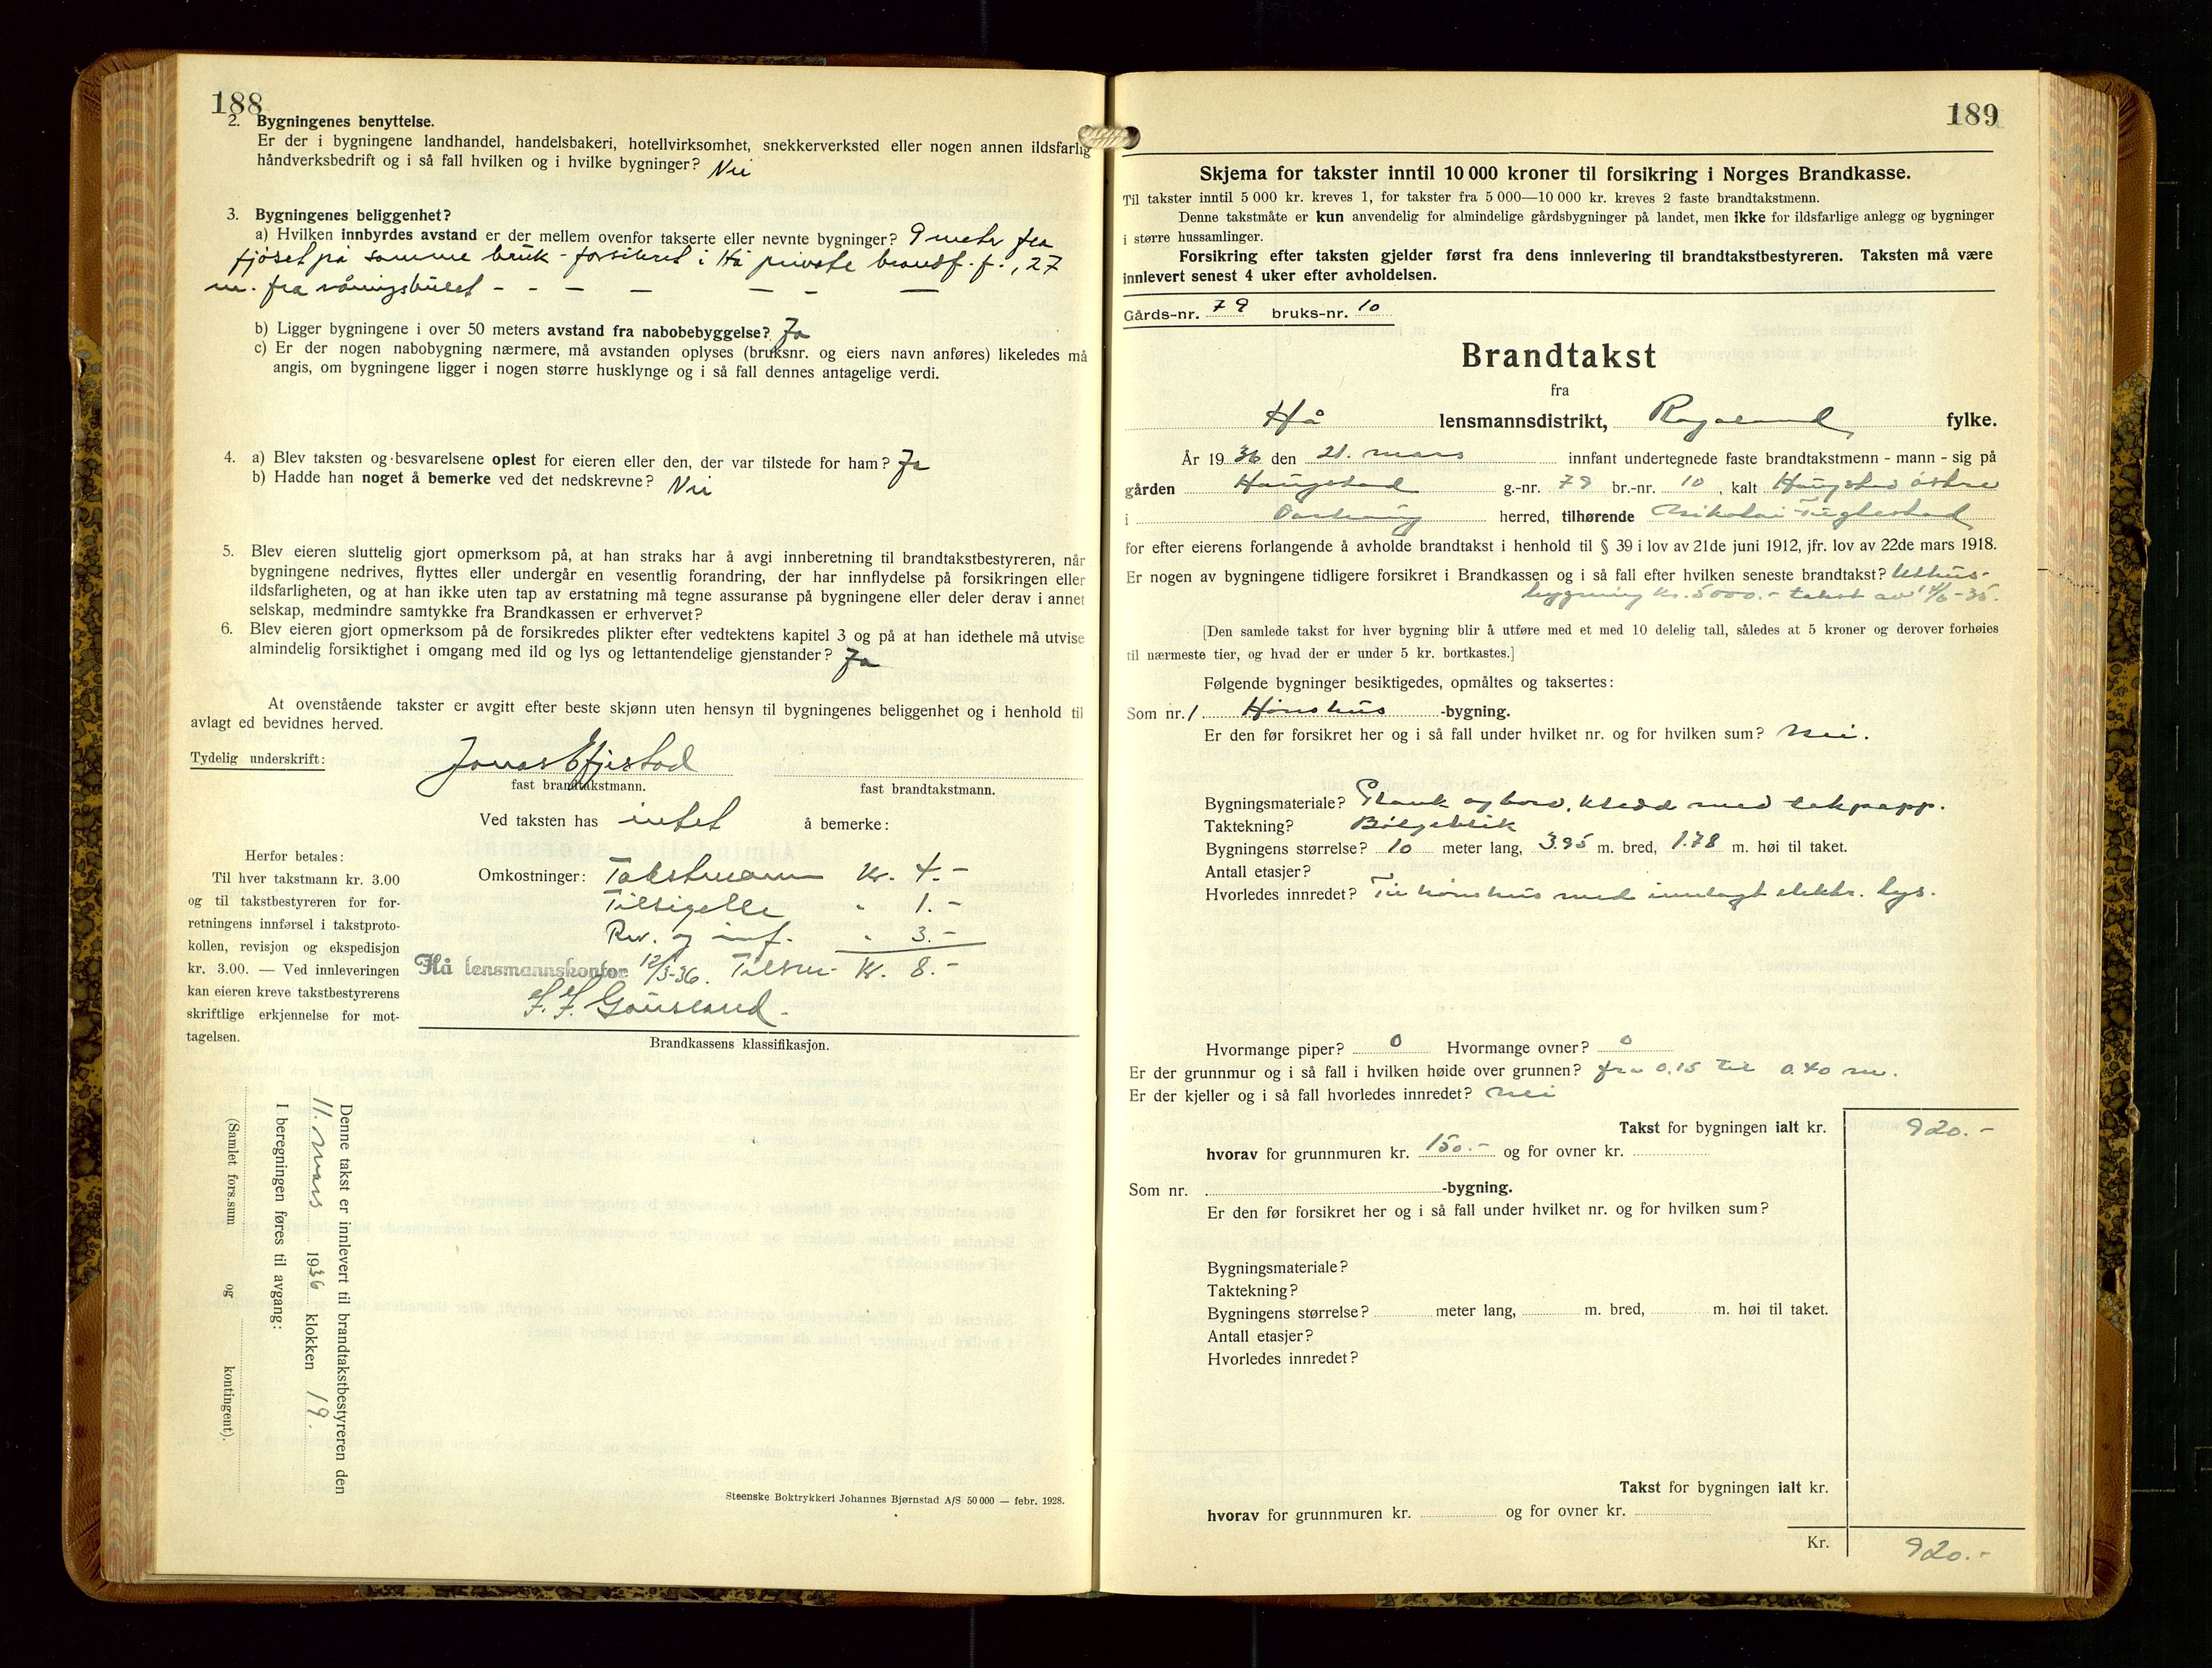 188
2. Bygningenes benyttelse.
Er der i bygningene landhandel, handelsbakeri, hotellvirksomhet, snekkerverksted eller nogen annen ildsfarlig
håndverksbedrift og i så fall hvilken og i hvilke bygninger? Nei
3. Bygningenes beliggenhet?
a) Hvilken innbyrdes avstand er der mellem ovenfor takserte eller nevnte bygninger? 9 meter fra
fjøset på samme bruk - forsikret i Hå private brandf.f., 27
m. fra våningshuset - - - - - - -
b) Ligger bygningene i over 50 meters avstand fra nabobebyggelse? Ja
c) Er der nogen nabobygning nærmere, må avstanden oplyses (bruksnr. og eiers navn anføres) likeledes må
angis, om bygningene ligger i nogen større husklynge og i så fall dennes antagelige verdi.
4. a) Blev taksten og besvarelsene oplest for eieren eller den, der var tilstede for ham? Ja
b) Hadde han noget å bemerke ved det nedskrevne? Nei
5. Blev eieren sluttelig gjort opmerksom på, at han straks har å avgi innberetning til brandtakstbestyreren, når
bygningene nedrives, flyttes eller undergår en vesentlig forandring, der har innflydelse på forsikringen eller
ildsfarligheten, og at han ikke uten tap av erstatning må tegne assuranse på bygningene eller deler derav i annet
selskap, medmindre samtykke fra Brandkassen er erhvervet?
6. Blev eieren gjort opmerksom på de forsikredes plikter efter vedtektens kapitel 3 og på at han idethele må utvise
almindelig forsiktighet i omgang med ild og lys og lettantendelige gjenstander? Ja
At ovenstående takster er avgitt efter beste skjønn uten hensyn til bygningenes beliggenhet og i henhold til
avlagt ed bevidnes herved.
Tydelig underskrift:
Jonas Efjestad
fast brandtakstmann. fast brandtakstmann.
Ved taksten has intet å bemerke:
Herfor betales:
Til hver takstmann kr. 3.00
og til takstbestyreren for for-
retningens innførsel i takstproto-
kollen, revisjon og ekspedisjon
kr. 3.00. — Ved innleveringen
kan eieren kreve takstbestyrerens
skriftlige erkjennelse for mot-
tagelsen.
Omkostninger: Takstmann Kr. 4.-
Tilsigelle " 1.-
Rev. og innf. " 3.-
Hå lensmannskontor 12/3-36. Tilsm. Kr. 8.-
Gausland.
Brandkassens klassifikasjon.
Denne takst er innlevert til brandtakstbestyreren den
11. mars 1936 klokken 19.
I beregningen føres til avgang:
(Samlet fors.sum og kontingent).
Steenske Boktrykkeri Johannes Bjørnstad A/S 50 000 — febr. 1928.
189
Skjema for takster inntil 10 000 kroner til forsikring i Norges Brandkasse.
Til takster inntil 5 000 kr. kreves 1, for takster fra 5 000—10 000 kr. kreves 2 faste brandtakstmenn.
Denne takstmåte er kun anvendelig for almindelige gårdsbygninger på landet, men ikke for ildsfarlige anlegg og bygninger
i større hussamlinger.
Forsikring efter taksten gjelder først fra dens innlevering til brandtakstbestyreren. Taksten må være
innlevert senest 4 uker efter avholdelsen.
Gårds-nr. 79 bruks-nr. 10
Brandtakst
fra
Hå lensmannsdistrikt, Rogaland fylke.
År 1936 den 21. mars innfant undertegnede faste brandtakstmenn - mann - sig på
gården Haugstad g.-nr. 79 br.-nr. 10, kalt Haugstad østre
i herred, tilhørende Nikolai Tuglestad
for efter eierens forlangende å avholde brandtakst i henhold til § 39 i lov av 21de juni 1912, jfr. lov av 22de mars 1918.
Er nogen av bygningene tidligere forsikret i Brandkassen og i så fall efter hvilken seneste brandtakst? Uthus-
bygning kr. 5000.- takst av /6-35.
[Den samlede takst for hver bygning blir å utføre med et med 10 delelig tall, således at 5 kroner og derover forhøies
til nærmeste tier, og hvad der er under 5 kr. bortkastes.]
Følgende bygninger besiktigedes, opmåltes og taksertes:
Som nr. 1 Hønshus -bygning.
Er den før forsikret her og i så fall under hvilket nr. og for hvilken sum? Nei.
Bygningsmateriale? Plank og bord, kledd med takpapp.
Taktekning? Bølgeblikk
Bygningens størrelse? 10 meter lang, 3.95 m. bred, 1.78 m. høi til taket.
Antall etasjer?
Hvorledes innredet? Til hønshus med innlagt elektr. lys.
Hvormange piper? 0 Hvormange ovner? 0
Er der grunnmur og i så fall i hvilken høide over grunnen? fra 0.15 til 0.40 m.
Er der kjeller og i så fall hvorledes innredet? Nei
Takst for bygningen ialt kr. 920.-
hvorav for grunnmuren kr. 150.- og for ovner kr.
Som nr. -bygning.
Er den før forsikret her og i så fall under hvilket nr. og for hvilken sum?
Bygningsmateriale?
Taktekning?
Bygningens størrelse? meter lang, m. bred, m. høi til taket.
Antall etasjer?
Hvorledes innredet?
Takst for bygningen ialt kr.
hvorav for grunnmuren kr. og for ovner kr.
Kr. 920.-